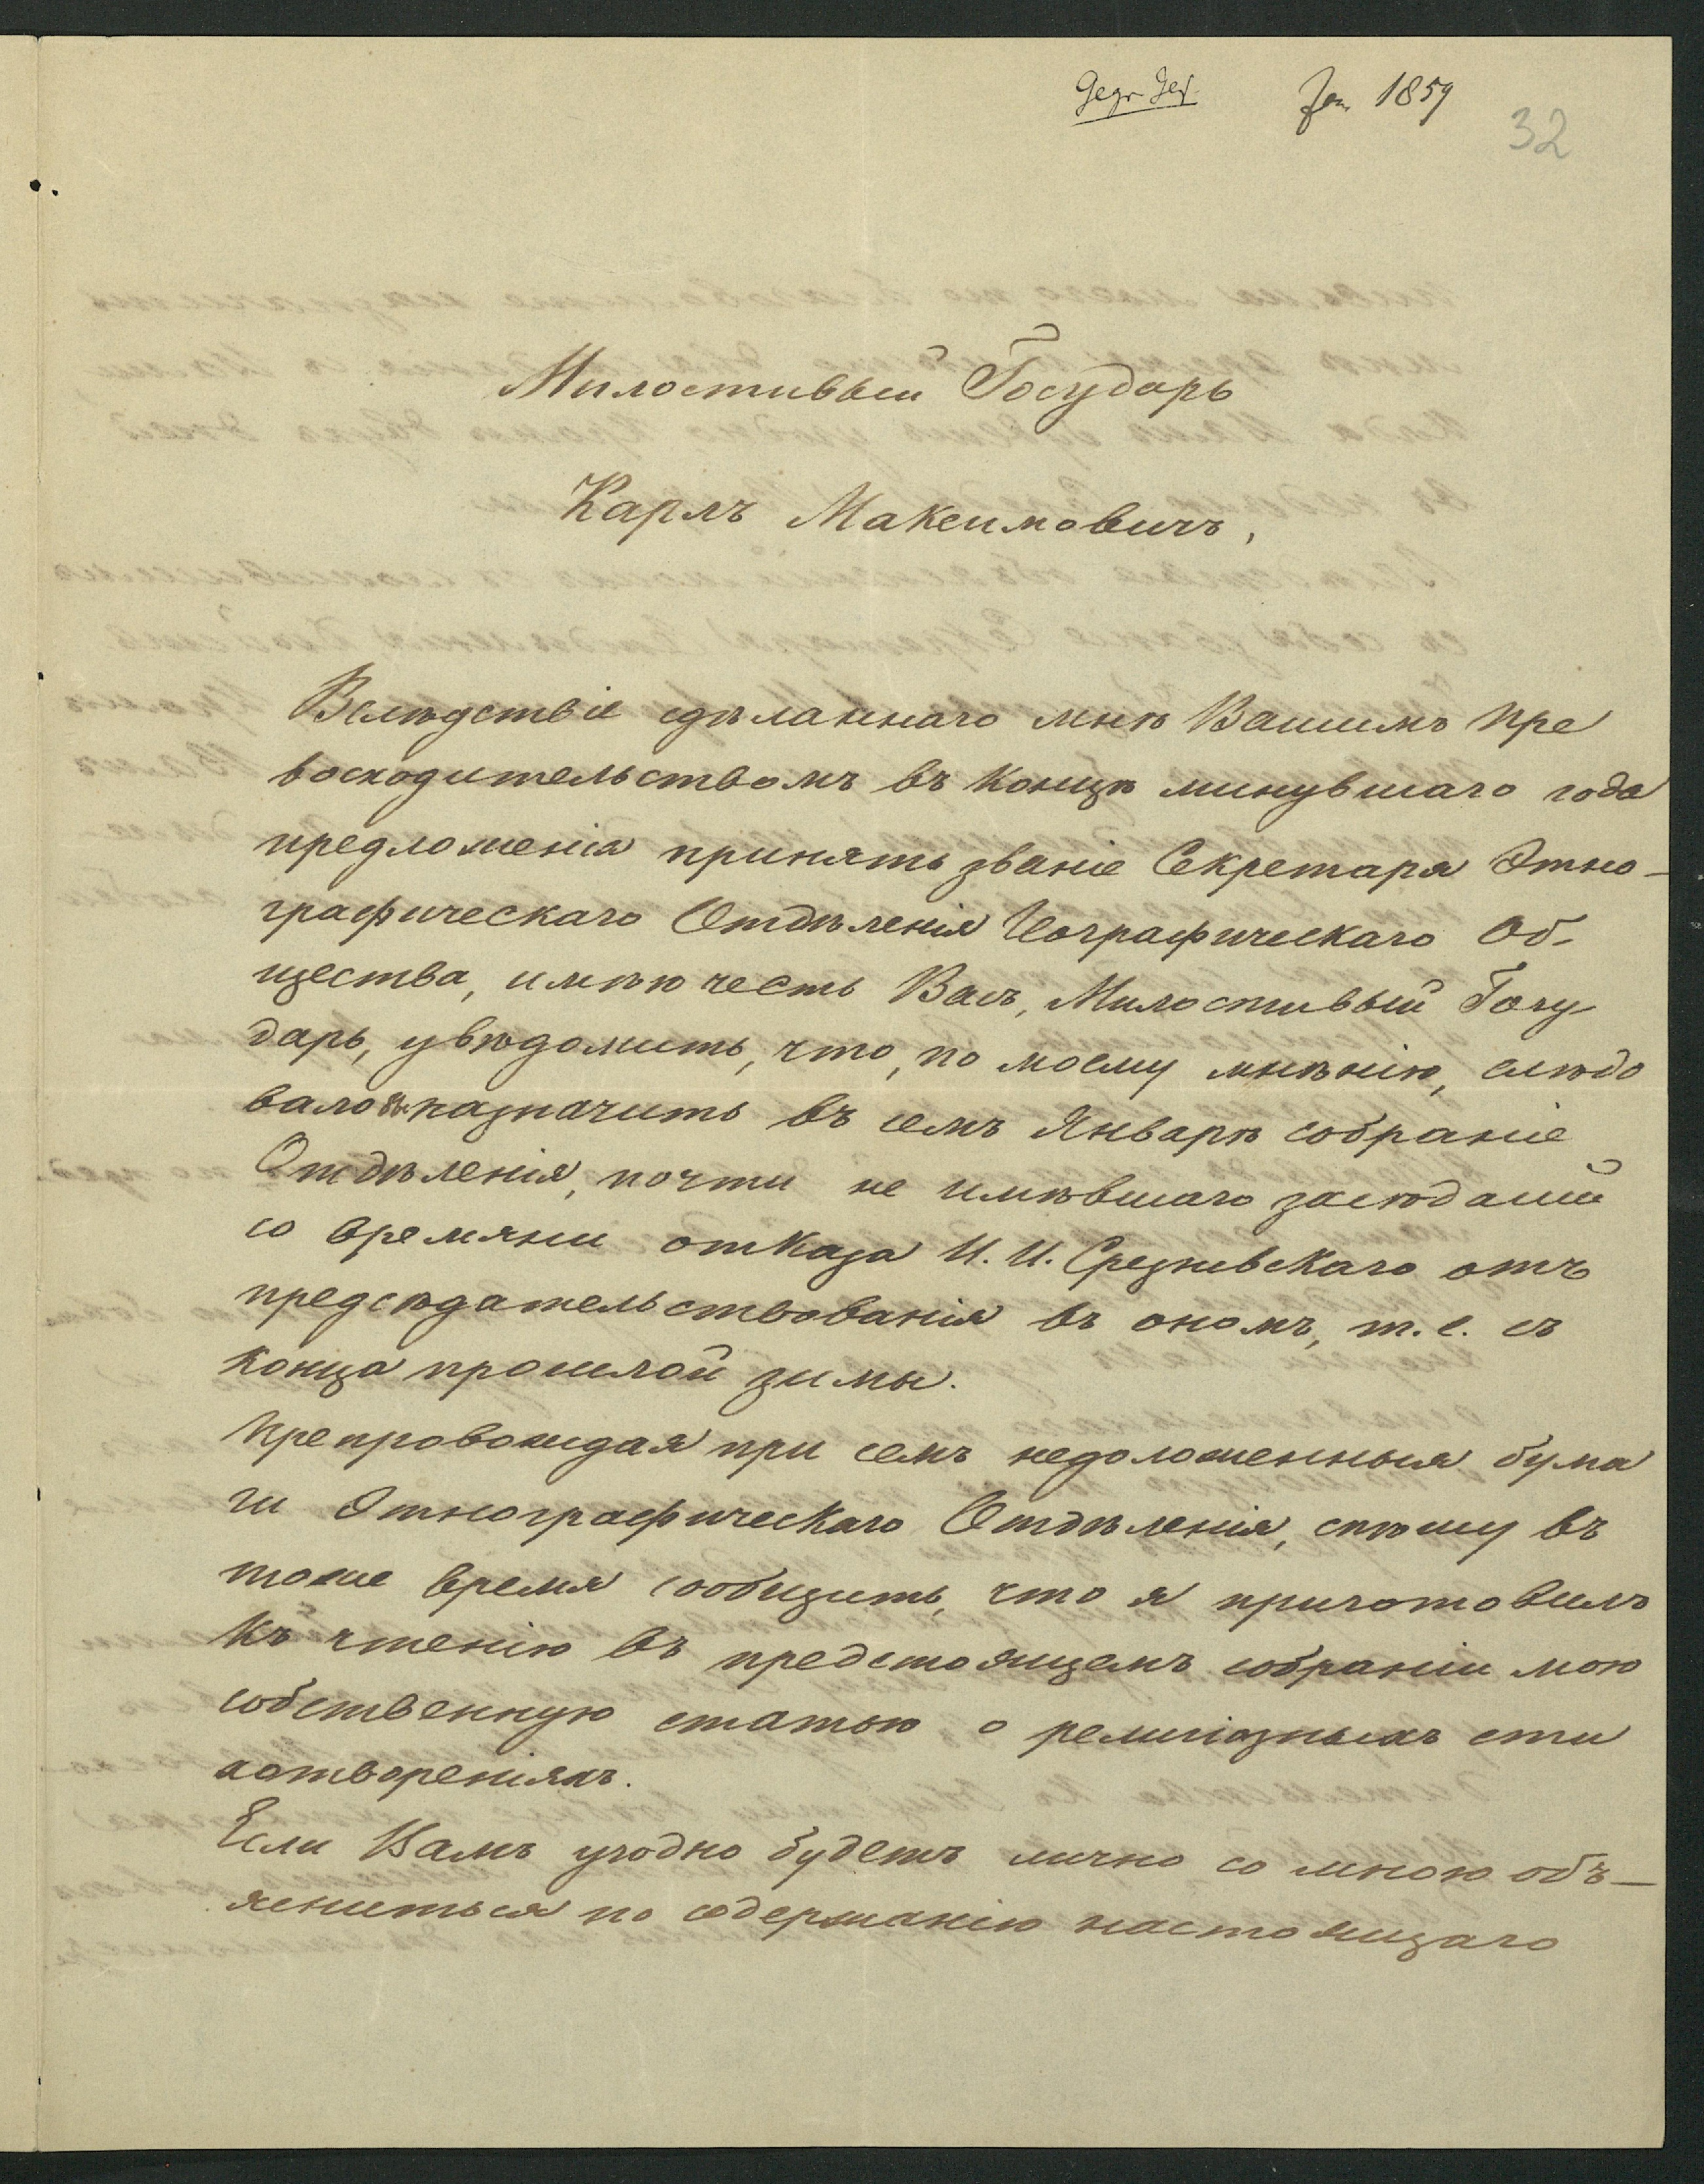 Jan 1859
32
Милостивый Государь
Карлъ Максимовичъ,
Вслѣдствіе сдѣланнаго мнѣ Вашимъ Пре
восходительствомъ въ концѣ минувшаго года
предложенія принять званіе Секретаря Этно-
графическаго Отдѣленія Географическаго Об-
щества, имѣю честь Васъ, Милостивый Госу-
дарь, увѣдомить, что, по моему мнѣнію, слѣдо
вало назначить въ семъ Январѣ собраніе
Отдѣленія, почти не имѣвшаго засѣданій
со времяни отказа И. И. Срезневскаго отъ
предсѣдательствованія въ ономъ, т. е. съ
конца прошлой зимы.
Препровождая при семъ недоложенныя бума
ги Этнографическаго Отдѣленія, спѣшу въ
тоже время сообщить, что я приготовилъ
къ чтенію въ предстоящемъ собраніи мою
собственную статью о религіозныхъ сти
хотвореніяхъ.
Если Вамъ угодно будетъ лично со мною объ-
ясниться по содержанію настоящаго